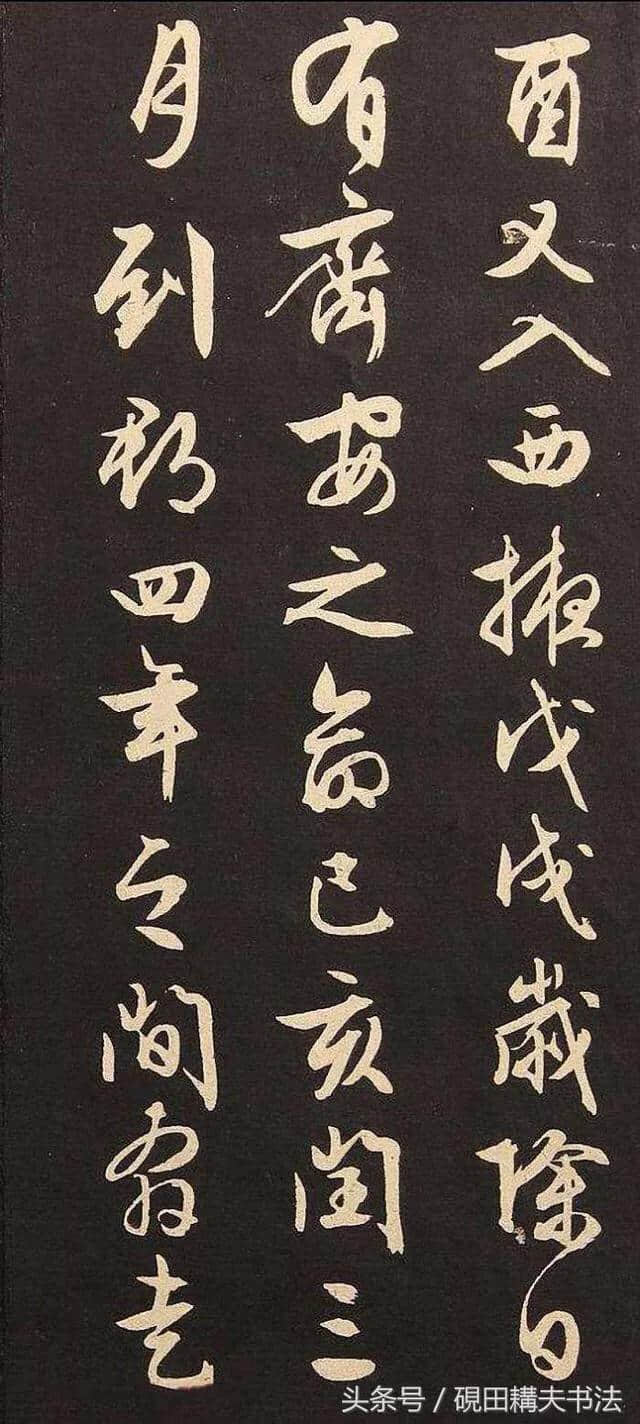 酉又入西掖戊戌歲除日
有齊安之命己亥閏三
月到郡四年之間奔走
头条号 / 硯田耩夫书法